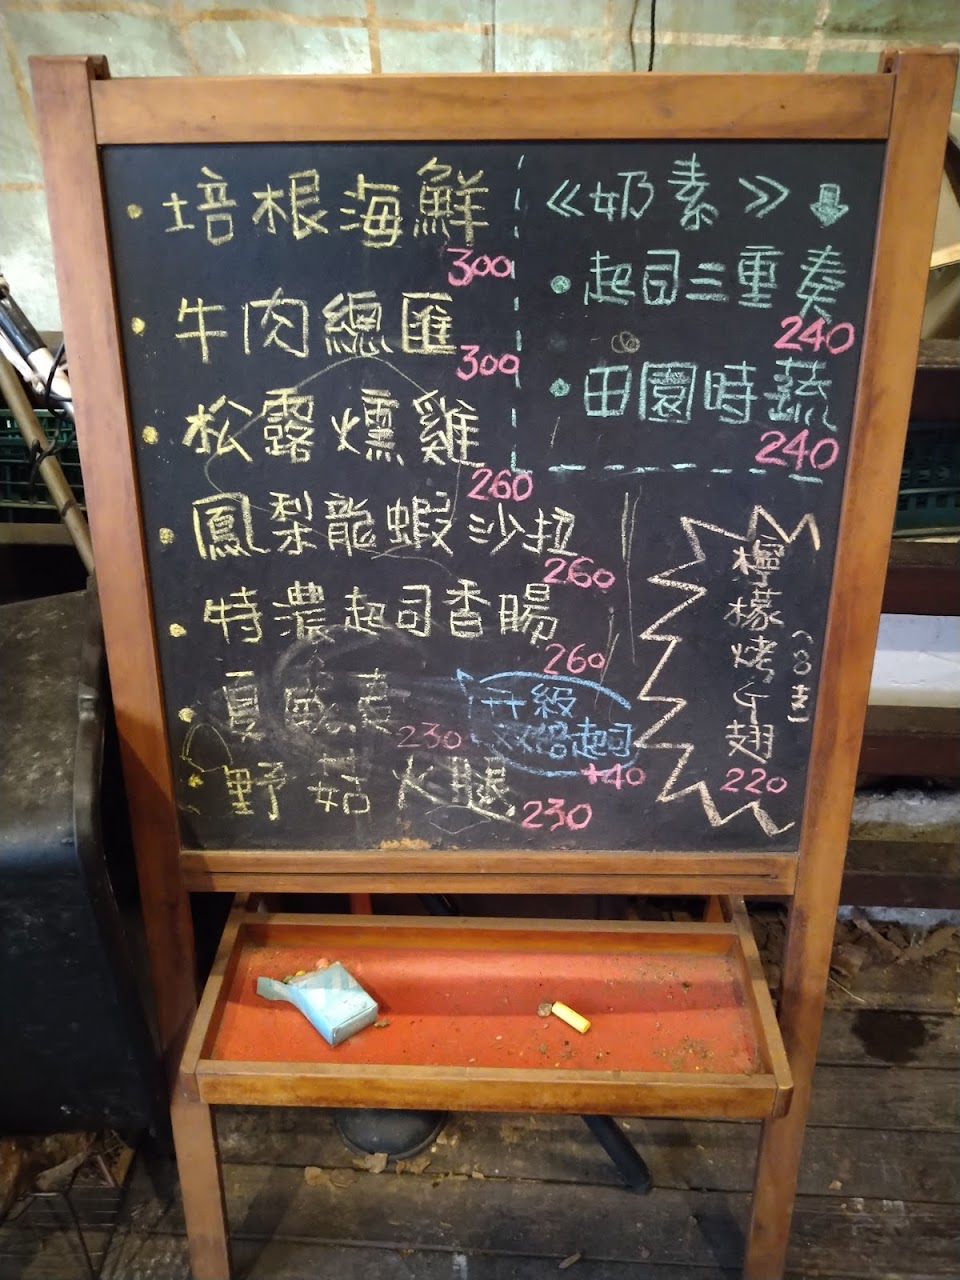 培根海鮮
300
牛肉總匯
300
松露燻雞
260
鳳梨龍蝦沙拉
260
特濃起司香腸
260
夏威夷
230
野菇火腿
230
升級
双倍起司
+40
《奶素》
起司三重奏
240
田園時蔬
240
檸檬烤斤翅
(8支)
220